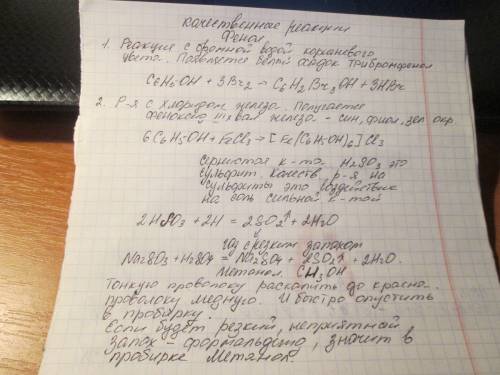 качественные реакции
Фенол
1. Реакция с бромной водой коричневого
цвета. Появляется белый осадок трибромфенол
C6H5OH + 3Br2 → C6H2Br3OH + 3HBr
2. Р-я с хлоридом железа. Получается
III х вал железа - син, фиол, зел окр.
6C6H5OH + FeCl3 → [Fe(C6H5OH)6]Cl3
Сернистая к-та. H2SO3 это
сульфит. Качеств. р-я на
сульфиты это воздействие
на соль сильной к-той
2HSO3 + 2H = 2SO2↑ + 2H2O
газ с резким запахом
Na2SO3 + H2SO4 = Na2SO4 + SO2↑ + 2H2O
Метанол. CH3OH
Тонкую проволоку раскалить до красна.
проволоку медную. И быстро опустить
в пробирку.
Если будет резкий, неприятный
запах - формальдегид, значит в
пробирке метанол.